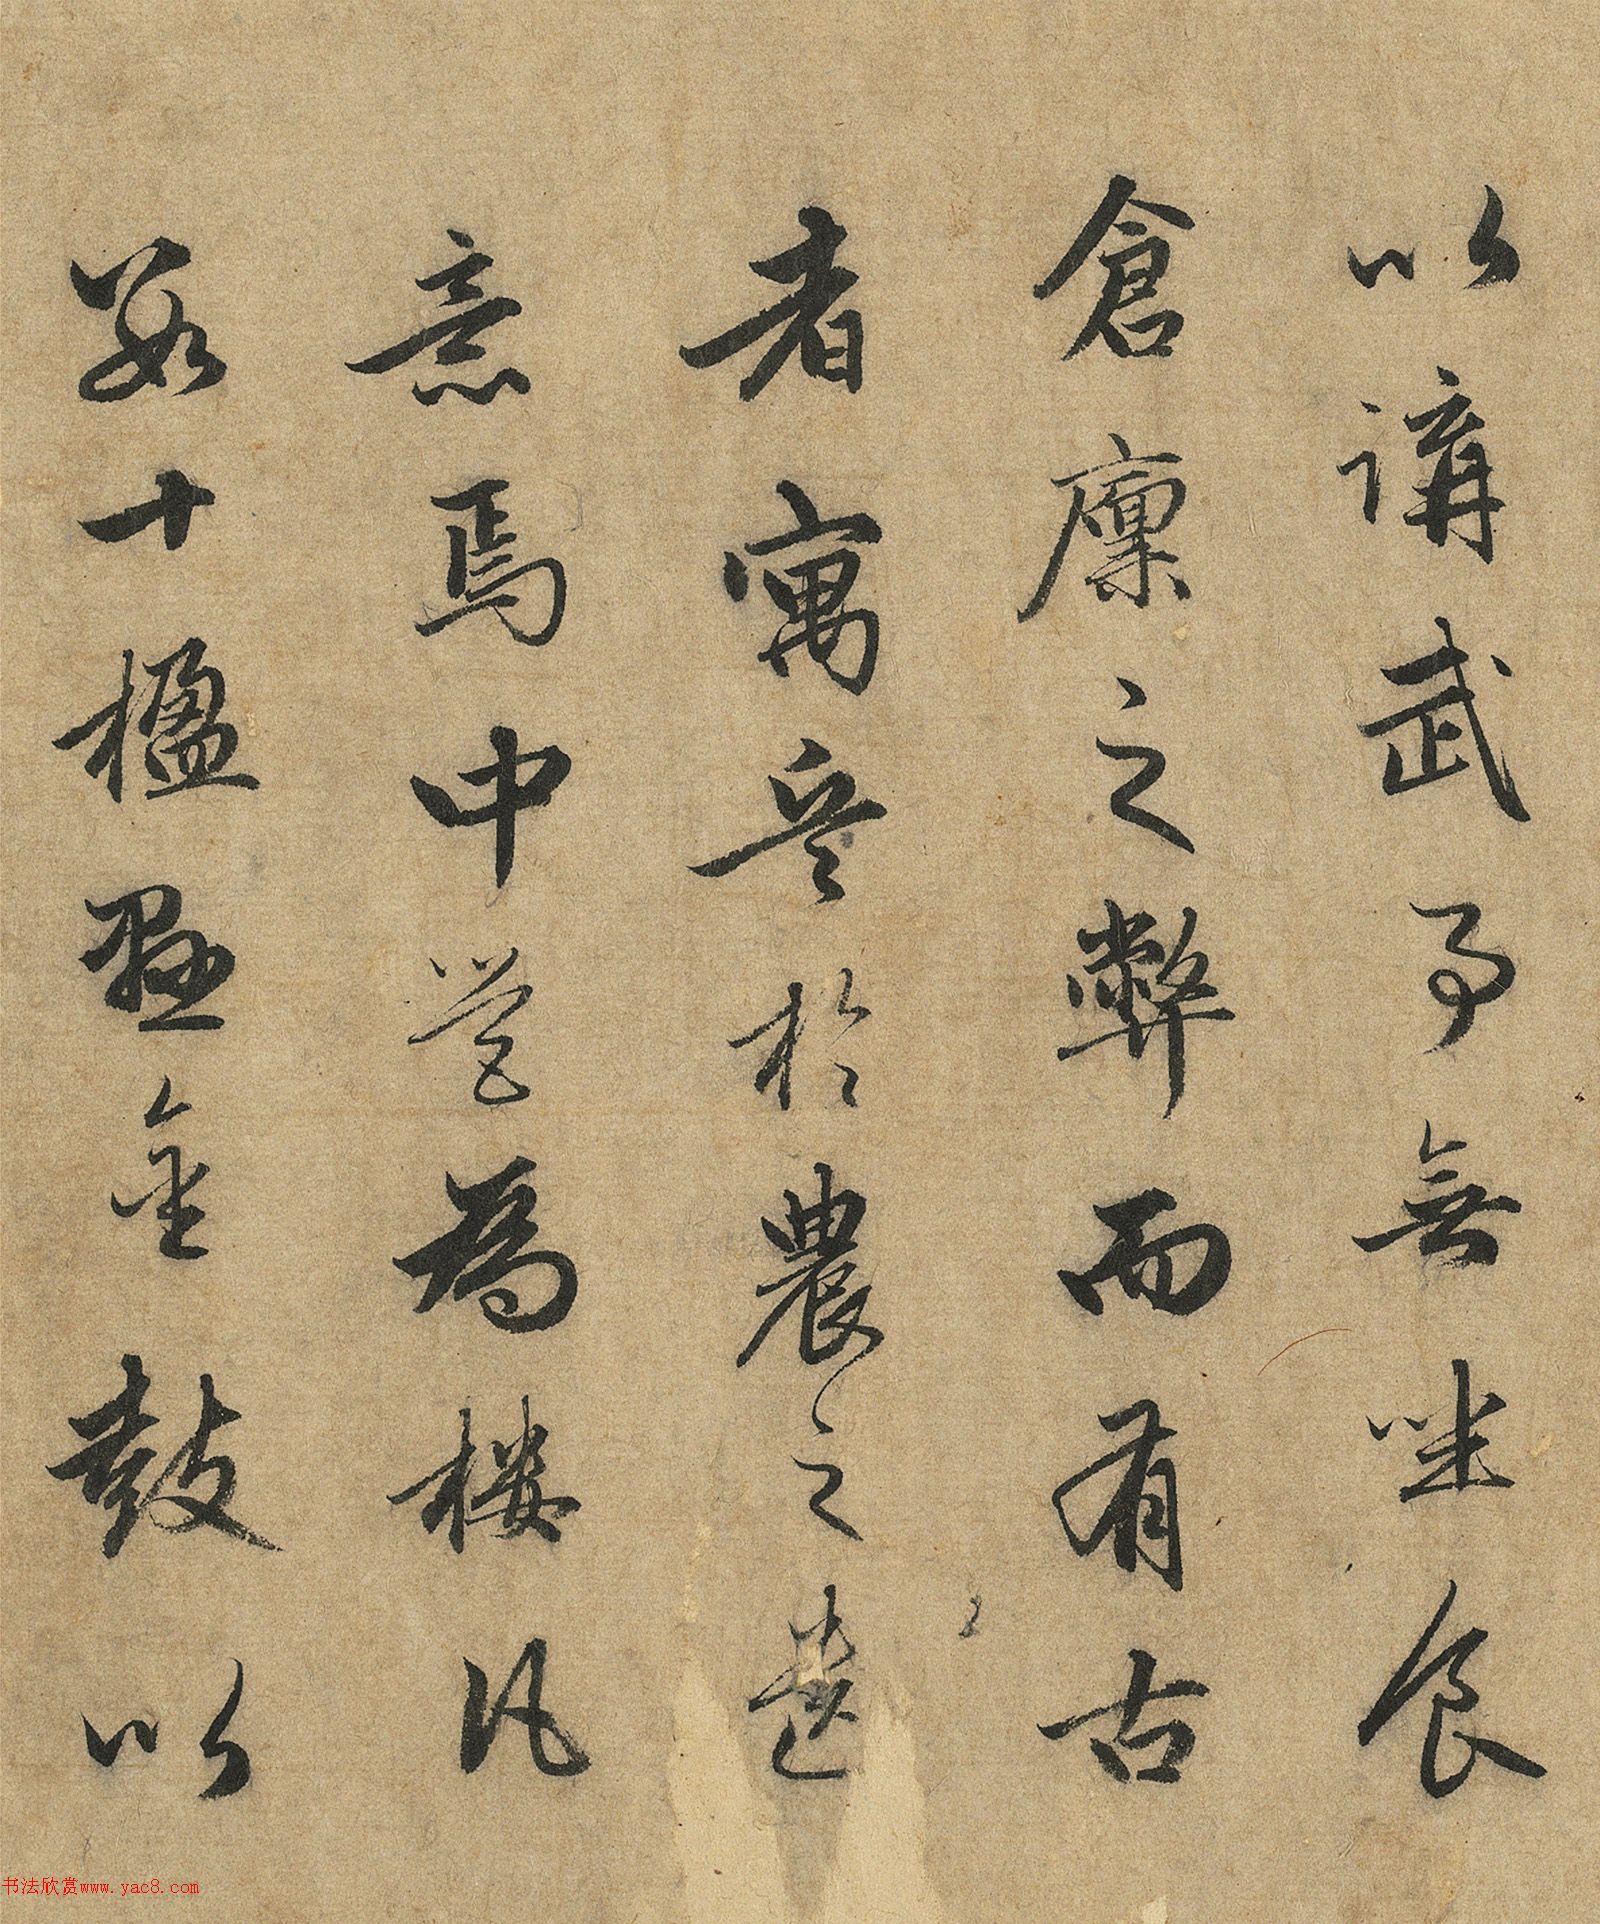 以講武事無坐食
倉廩之弊而有古
者寓兵於農之遺
意焉中營為樓凡
若十楹懸金鼓以
书法欣赏www.yac8.com